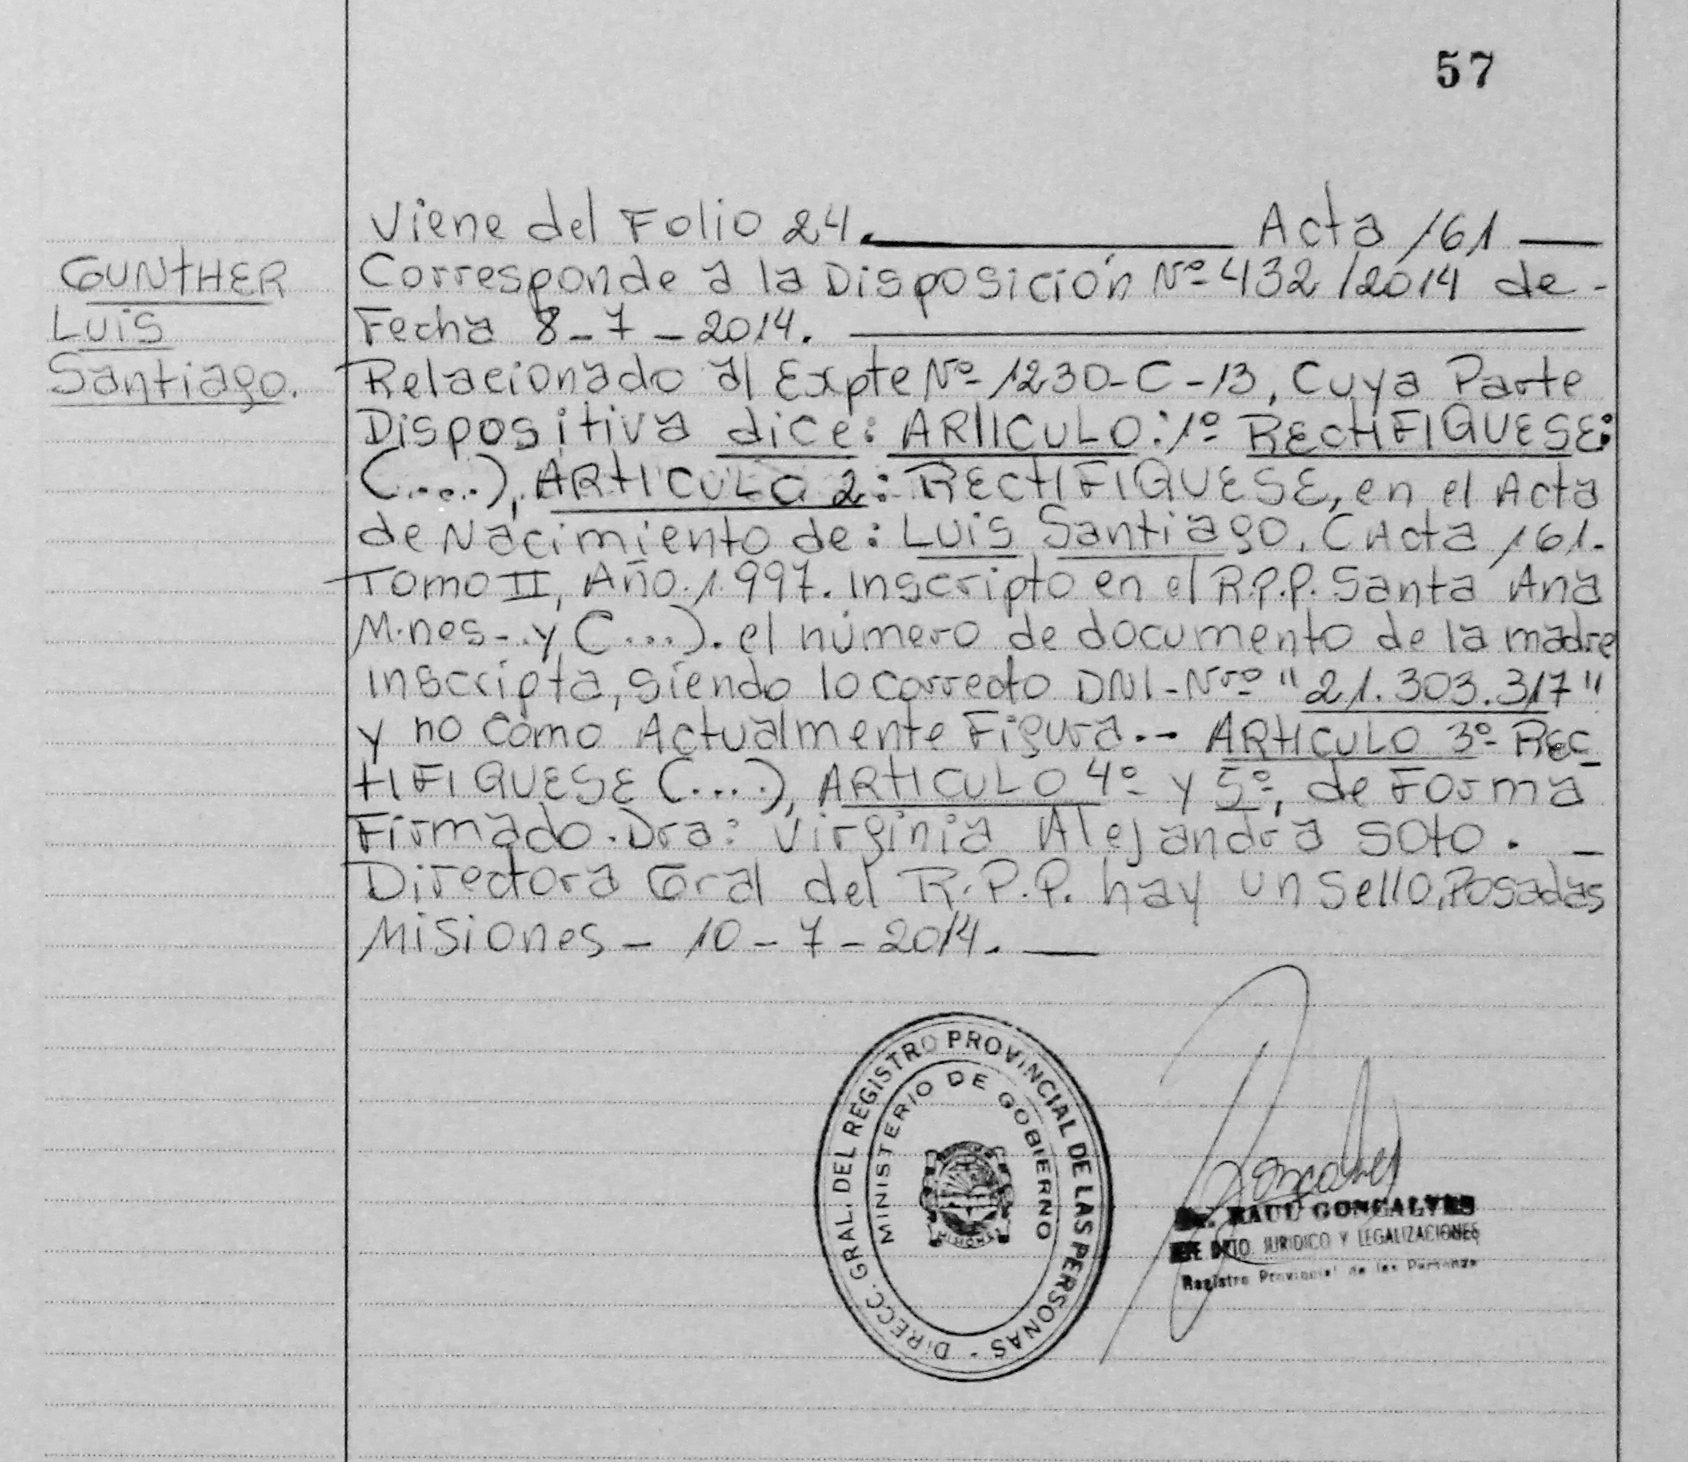 57
GUNTHER
Luis
Santiago.
Viene del Folio 24. Acta 161
Corresponde a la Disposición Nº 432/2014 de -
Fecha 8-7-2014.
Relacionado al Expte Nº 1230-C-13, Cuya Parte
Dispositiva dice: ARTICULO: 1º RECTIFIQUESE:
(....), ARTICULO 2: RECTIFIQUESE, en el Acta
de Nacimiento de: Luis Santiago, (Acta 161.
Tomo II, Año. 1.997. Inscripto en el R.P.P. Santa Ana
M.nes-. y (....). el número de documento de la madre
Inscripta, siendo lo correcto DNI-Nrº "21.303.317"
y no como Actualmente Figura.- ARTICULO 3º REC
TIFIQUESE (....), ARTICULO 4º y 5º, de Forma
Firmado. Dra: Virginia Alejandra Soto. -
Directora Gral del R.P.P. hay un sello, Posadas
Misiones - 10-7-2014.
DIRECC. GRAL. DEL REGISTRO PROVINCIAL DE LAS PERSONAS -
MINISTERIO DE GOBIERNO
MISIONES
Goncalves
Dr. RAUL GONCALVES
JEFE DPTO. JURIDICO Y LEGALIZACIONES
Registro Provincial de las Personas